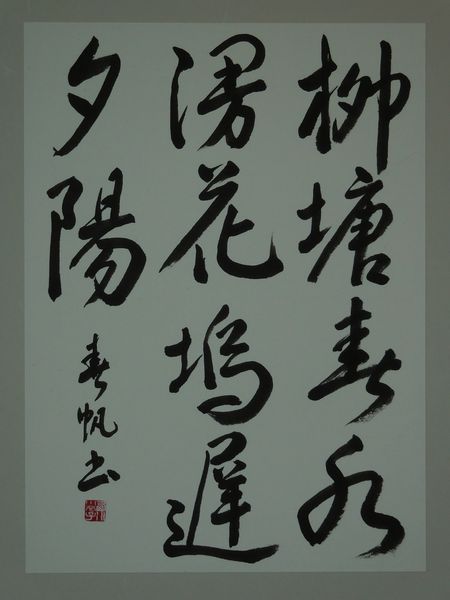 柳塘春水
漫花塢遲
夕陽
春帆书